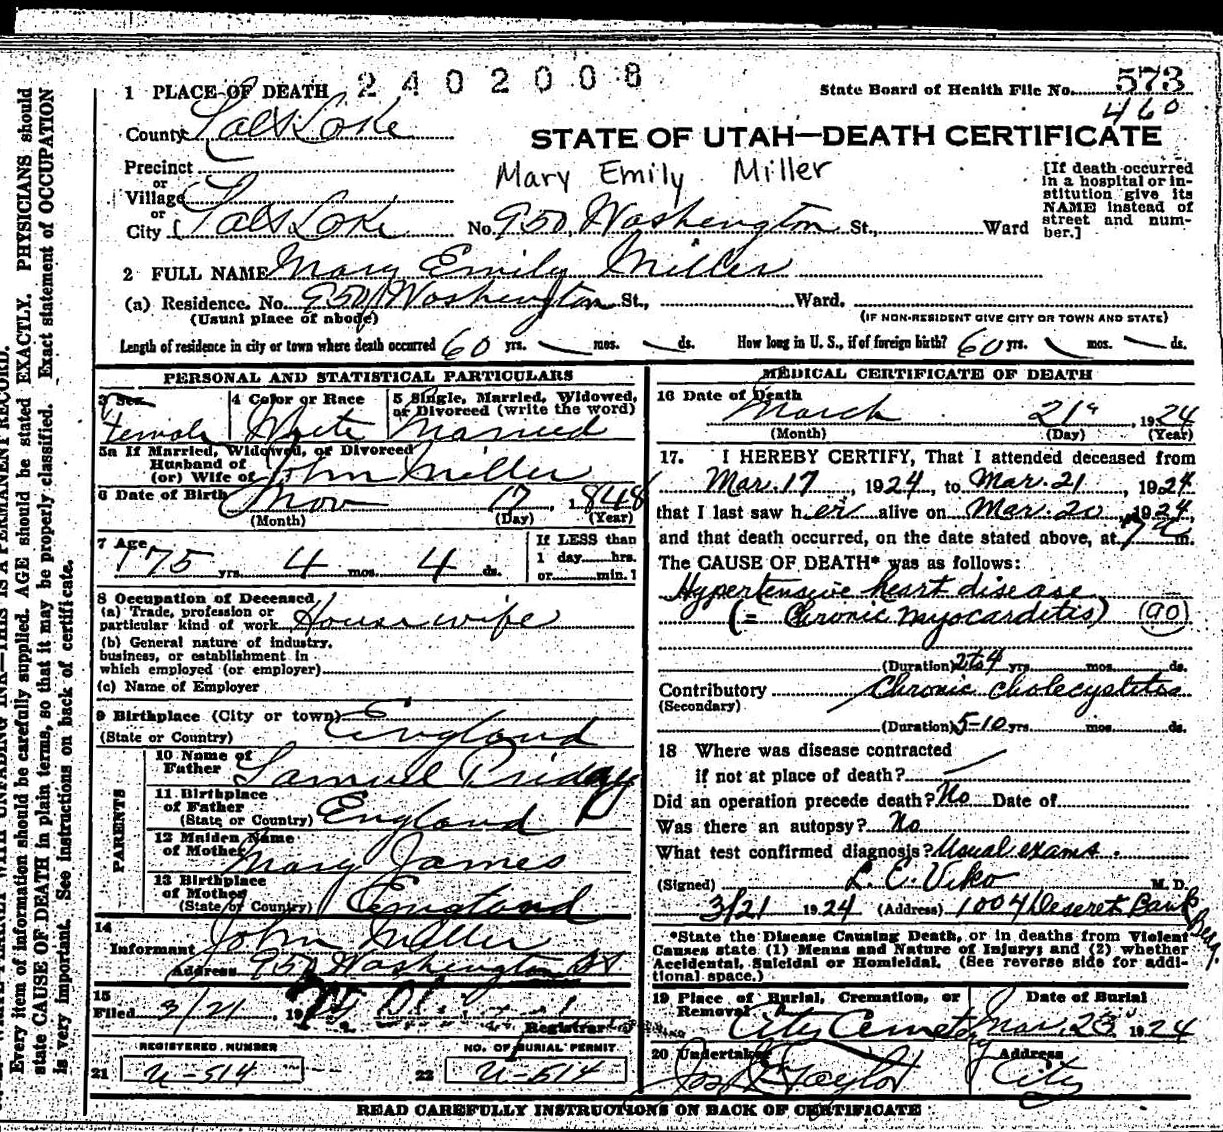 2402008
573
State Board of Health File No.
460
1 PLACE OF DEATH
County Salt Lake
STATE OF UTAH—DEATH CERTIFICATE
Precinct
Mary Emily Miller
[If death occurred in a hospital or institution give its NAME instead of street and number.]
or
Village
or
City Salt Lake No. 950, Washington St., Ward
2 FULL NAME Mary Emily Miller
(a) Residence. No. 950 Washington St., Ward.
(Usual place of abode) (IF NON-RESIDENT GIVE CITY OR TOWN AND STATE)
Length of residence in city or town where death occurred 60 yrs. — mos. — ds. How long in U. S., if of foreign birth? 60 yrs. mos. ds.
PERSONAL AND STATISTICAL PARTICULARS
3 Sex 4 Color or Race 5 Single, Married, Widowed,
or Divorced (write the word)
Female White Married
5a If Married, Widowed, or Divorced
Husband of
(or) Wife of John Miller
6 Date of Birth Nov 17, 1848
(Month) (Day) (Year)
7 Age 75 yrs. 4 mos. 4 ds.
If LESS than
1 day hrs.
or min. ?
8 Occupation of Deceased
(a) Trade, profession or
particular kind of work Housewife
(b) General nature of industry,
business, or establishment in
which employed (or employer)
(c) Name of Employer
9 Birthplace (City or town)
(State or Country) England
PARENTS
10 Name of
Father Samuel Priday
11 Birthplace
of Father
(State or Country) England
12 Maiden Name
of Mother Mary James
13 Birthplace
of Mother
(State or Country) England
14
Informant John Miller
Address 950 Washington St
15
Filed 3/21, 19
Registrar
REGISTERED NUMBER
21 U-514
NO. OF BURIAL PERMIT
22 U-514
MEDICAL CERTIFICATE OF DEATH
16 Date of Death
March 21, 1924
(Month) (Day) (Year)
17. I HEREBY CERTIFY, That I attended deceased from
Mar. 17, 1924, to Mar. 21, 1924
that I last saw her alive on Mar. 20, 1924,
and that death occurred, on the date stated above, at 7 a m.
The CAUSE OF DEATH* was as follows:
Hypertensive heart disease
(= Chronic myocarditis) (90)
(Duration) 2 to 4 yrs. mos. ds.
Contributory Chronic cholecystitis
(Secondary)
(Duration) 5-10 yrs. mos. ds.
18 Where was disease contracted
if not at place of death?
Did an operation precede death? No Date of
Was there an autopsy? No
What test confirmed diagnosis? Usual exams.
(Signed) L. E. Viko M. D.
3/21 1924 (Address) 1004 Deseret Bank Bldg.
*State the Disease Causing Death, or in deaths from Violent
Causes state (1) Means and Nature of Injury; and (2) whether
Accidental, Suicidal or Homicidal. (See reverse side for addi-
tional space.)
19 Place of Burial, Cremation, or Date of Burial
Removal
City Cemetery Mar. 23 1924
20 Undertaker Address
Jos Taylor City
READ CAREFULLY INSTRUCTIONS ON BACK OF CERTIFICATE
THIS IS A PERMANENT RECORD.
Every item of information should be carefully supplied. AGE should be stated EXACTLY. PHYSICIANS should
state CAUSE OF DEATH in plain terms, so that it may be properly classified. Exact statement of OCCUPATION
is very important. See instructions on back of certificate.